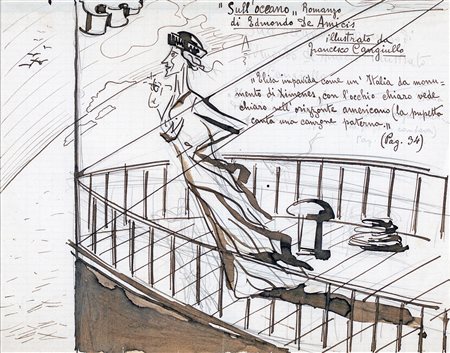 "Sull'oceano" Romanzo
di Edmondo De Amicis
illustrato da
Francesco Cangiullo
"Elisa impavida come un'Italia da monu=
mento di Ximenes, con l'occhio chiaro vede
chiaro nell'orizzonte americano (la pupetta
canta una canzone paterna."
(Pag. 34)